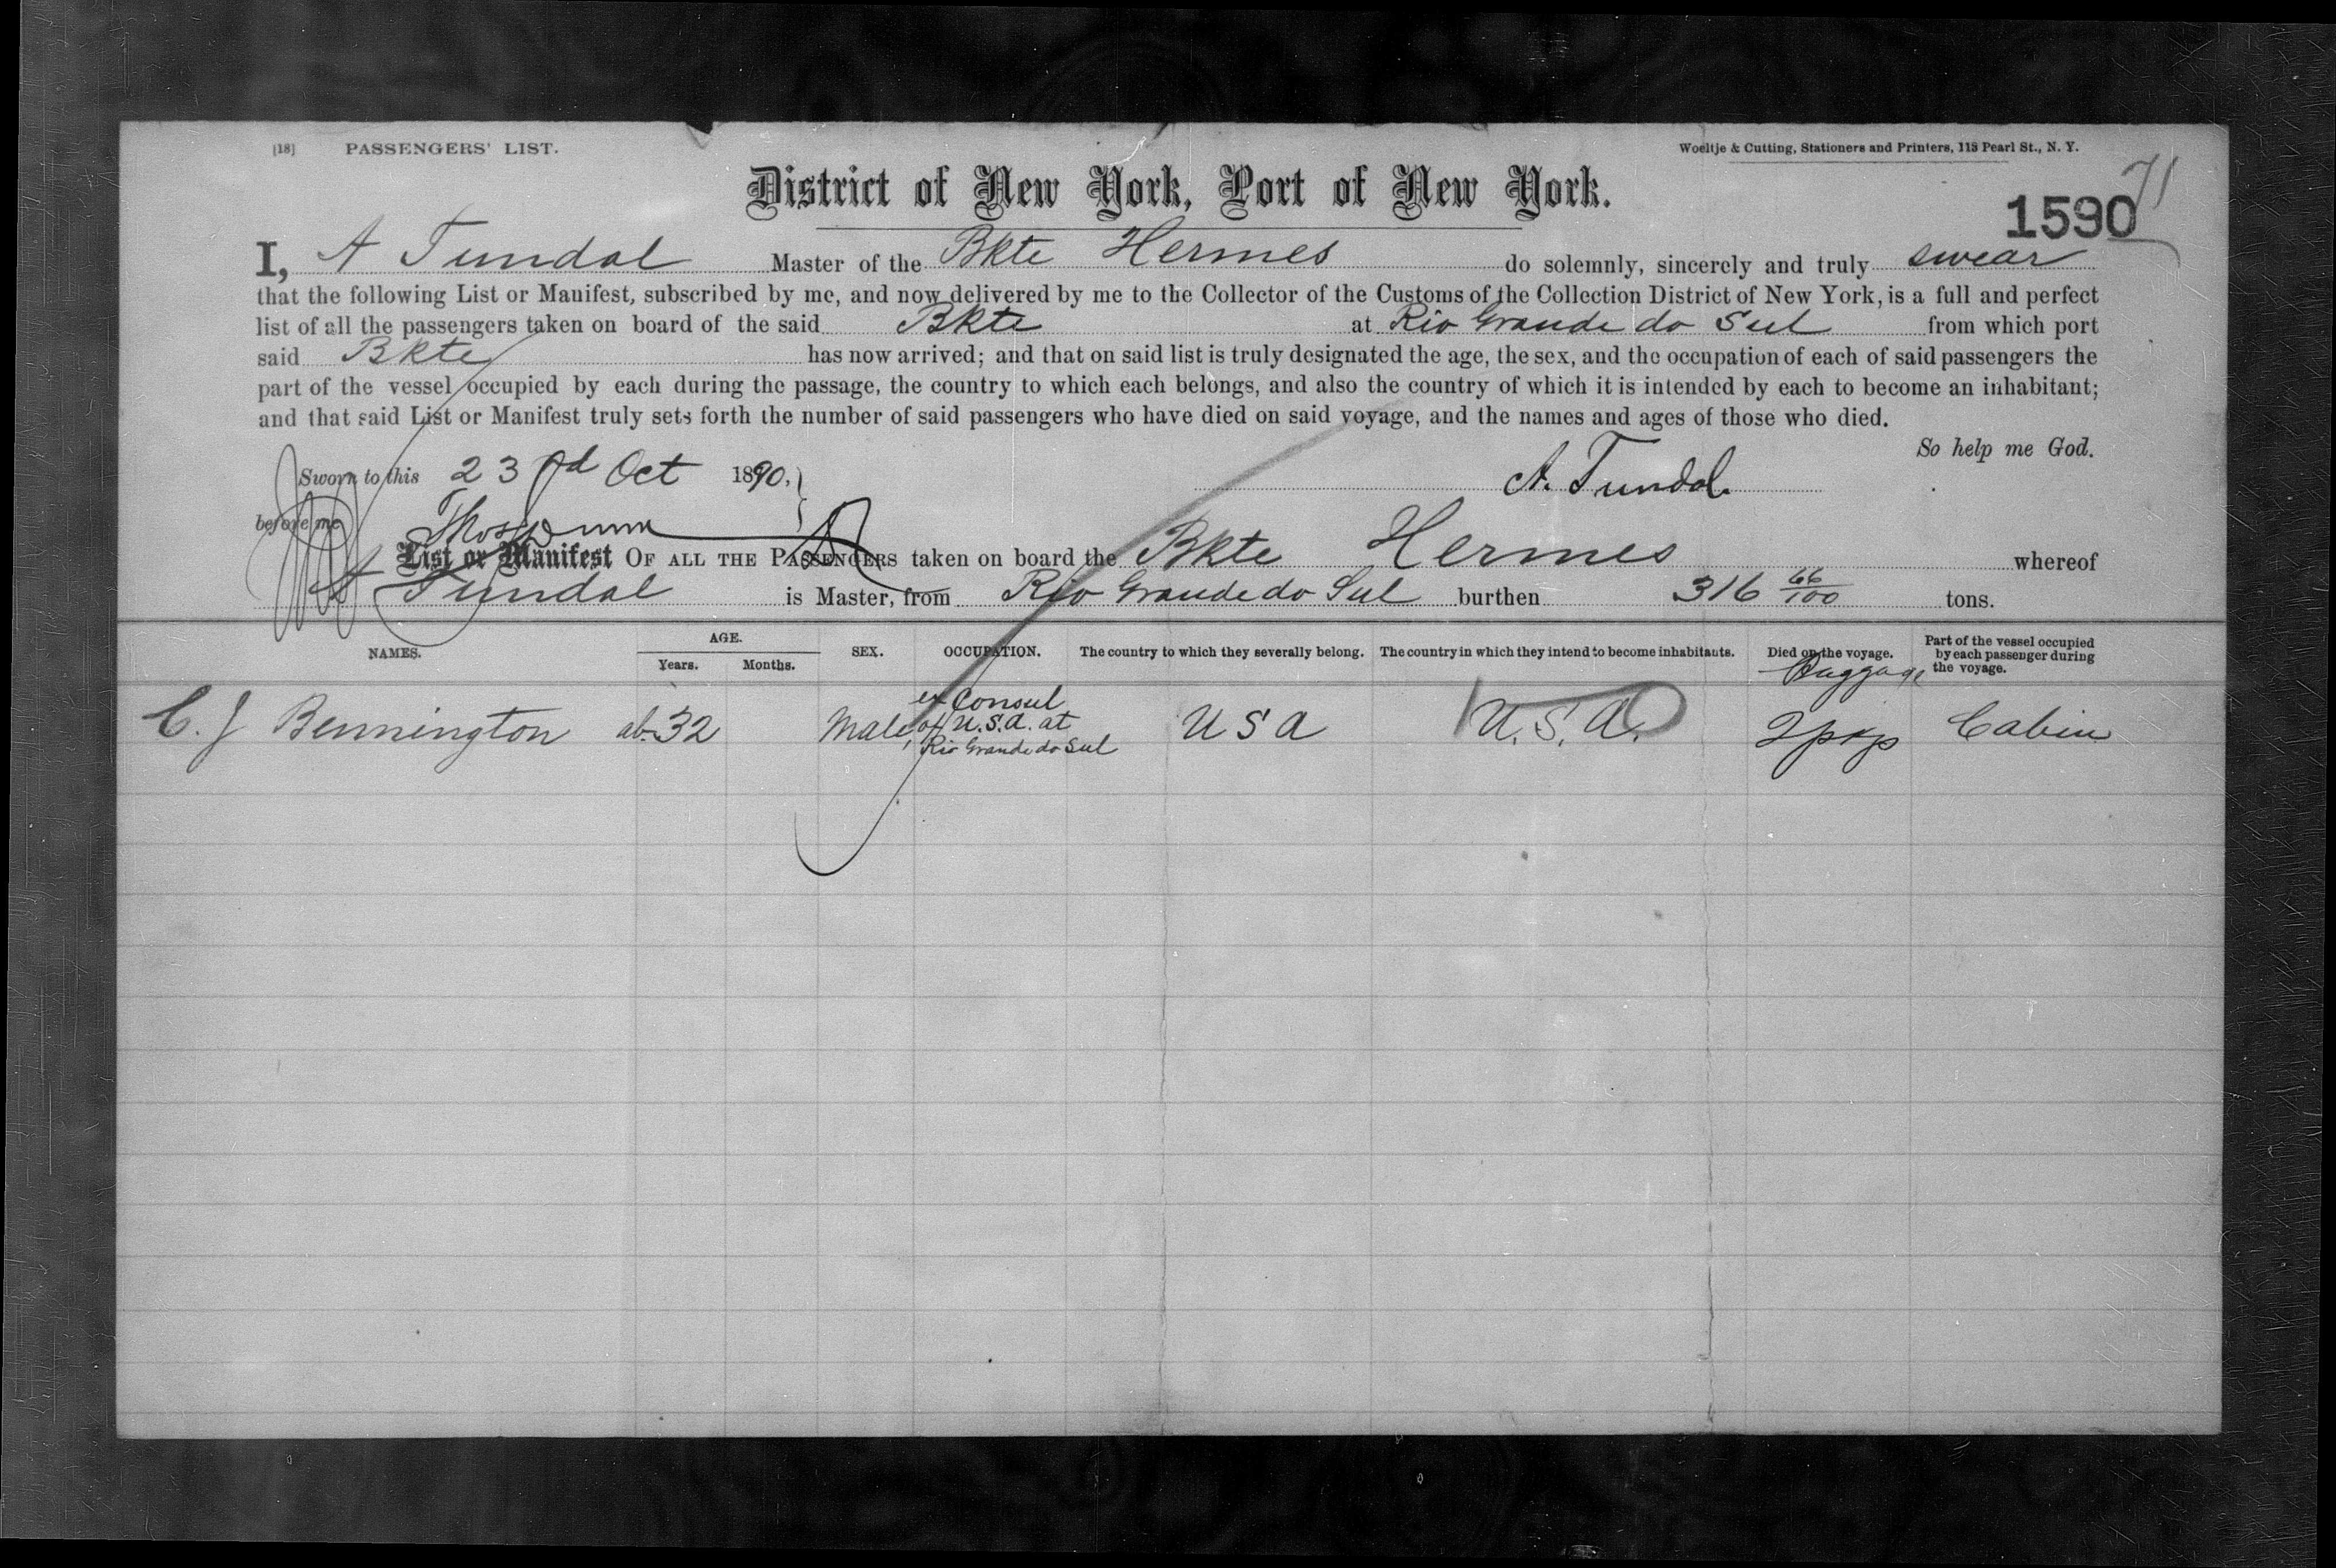 [18] PASSENGERS' LIST.
Woeltje & Cutting, Stationers and Printers, 113 Pearl St., N. Y.
71
District of New York, Port of New York.
1590
I, A Tundal Master of the Bkte Hermes do solemnly, sincerely and truly swear
that the following List or Manifest, subscribed by me, and now delivered by me to the Collector of the Customs of the Collection District of New York, is a full and perfect
list of all the passengers taken on board of the said Bkte at Rio Grande do Sul from which port
said Bkte has now arrived; and that on said list is truly designated the age, the sex, and the occupation of each of said passengers the
part of the vessel occupied by each during the passage, the country to which each belongs, and also the country of which it is intended by each to become an inhabitant;
and that said List or Manifest truly sets forth the number of said passengers who have died on said voyage, and the names and ages of those who died.
So help me God.
Sworn to this 23rd Oct 1890,
A. Tundal
before me Thos Dunn
List or Manifest OF ALL THE PASSENGERS taken on board the Bkte Hermes whereof
A Tundal is Master, from Rio Grande do Sul burthen 316 66/100 tons.
NAMES. AGE. Years. Months. SEX. OCCUPATION. The country to which they severally belong. The country in which they intend to become inhabitants. Died on the voyage. Part of the vessel occupied by each passenger during the voyage.
Baggage
C. J Bennington ab 32 Male ex Consul of U.S.A. at Rio Grande do Sul U S A U.S.A. 2 pkgs Cabin